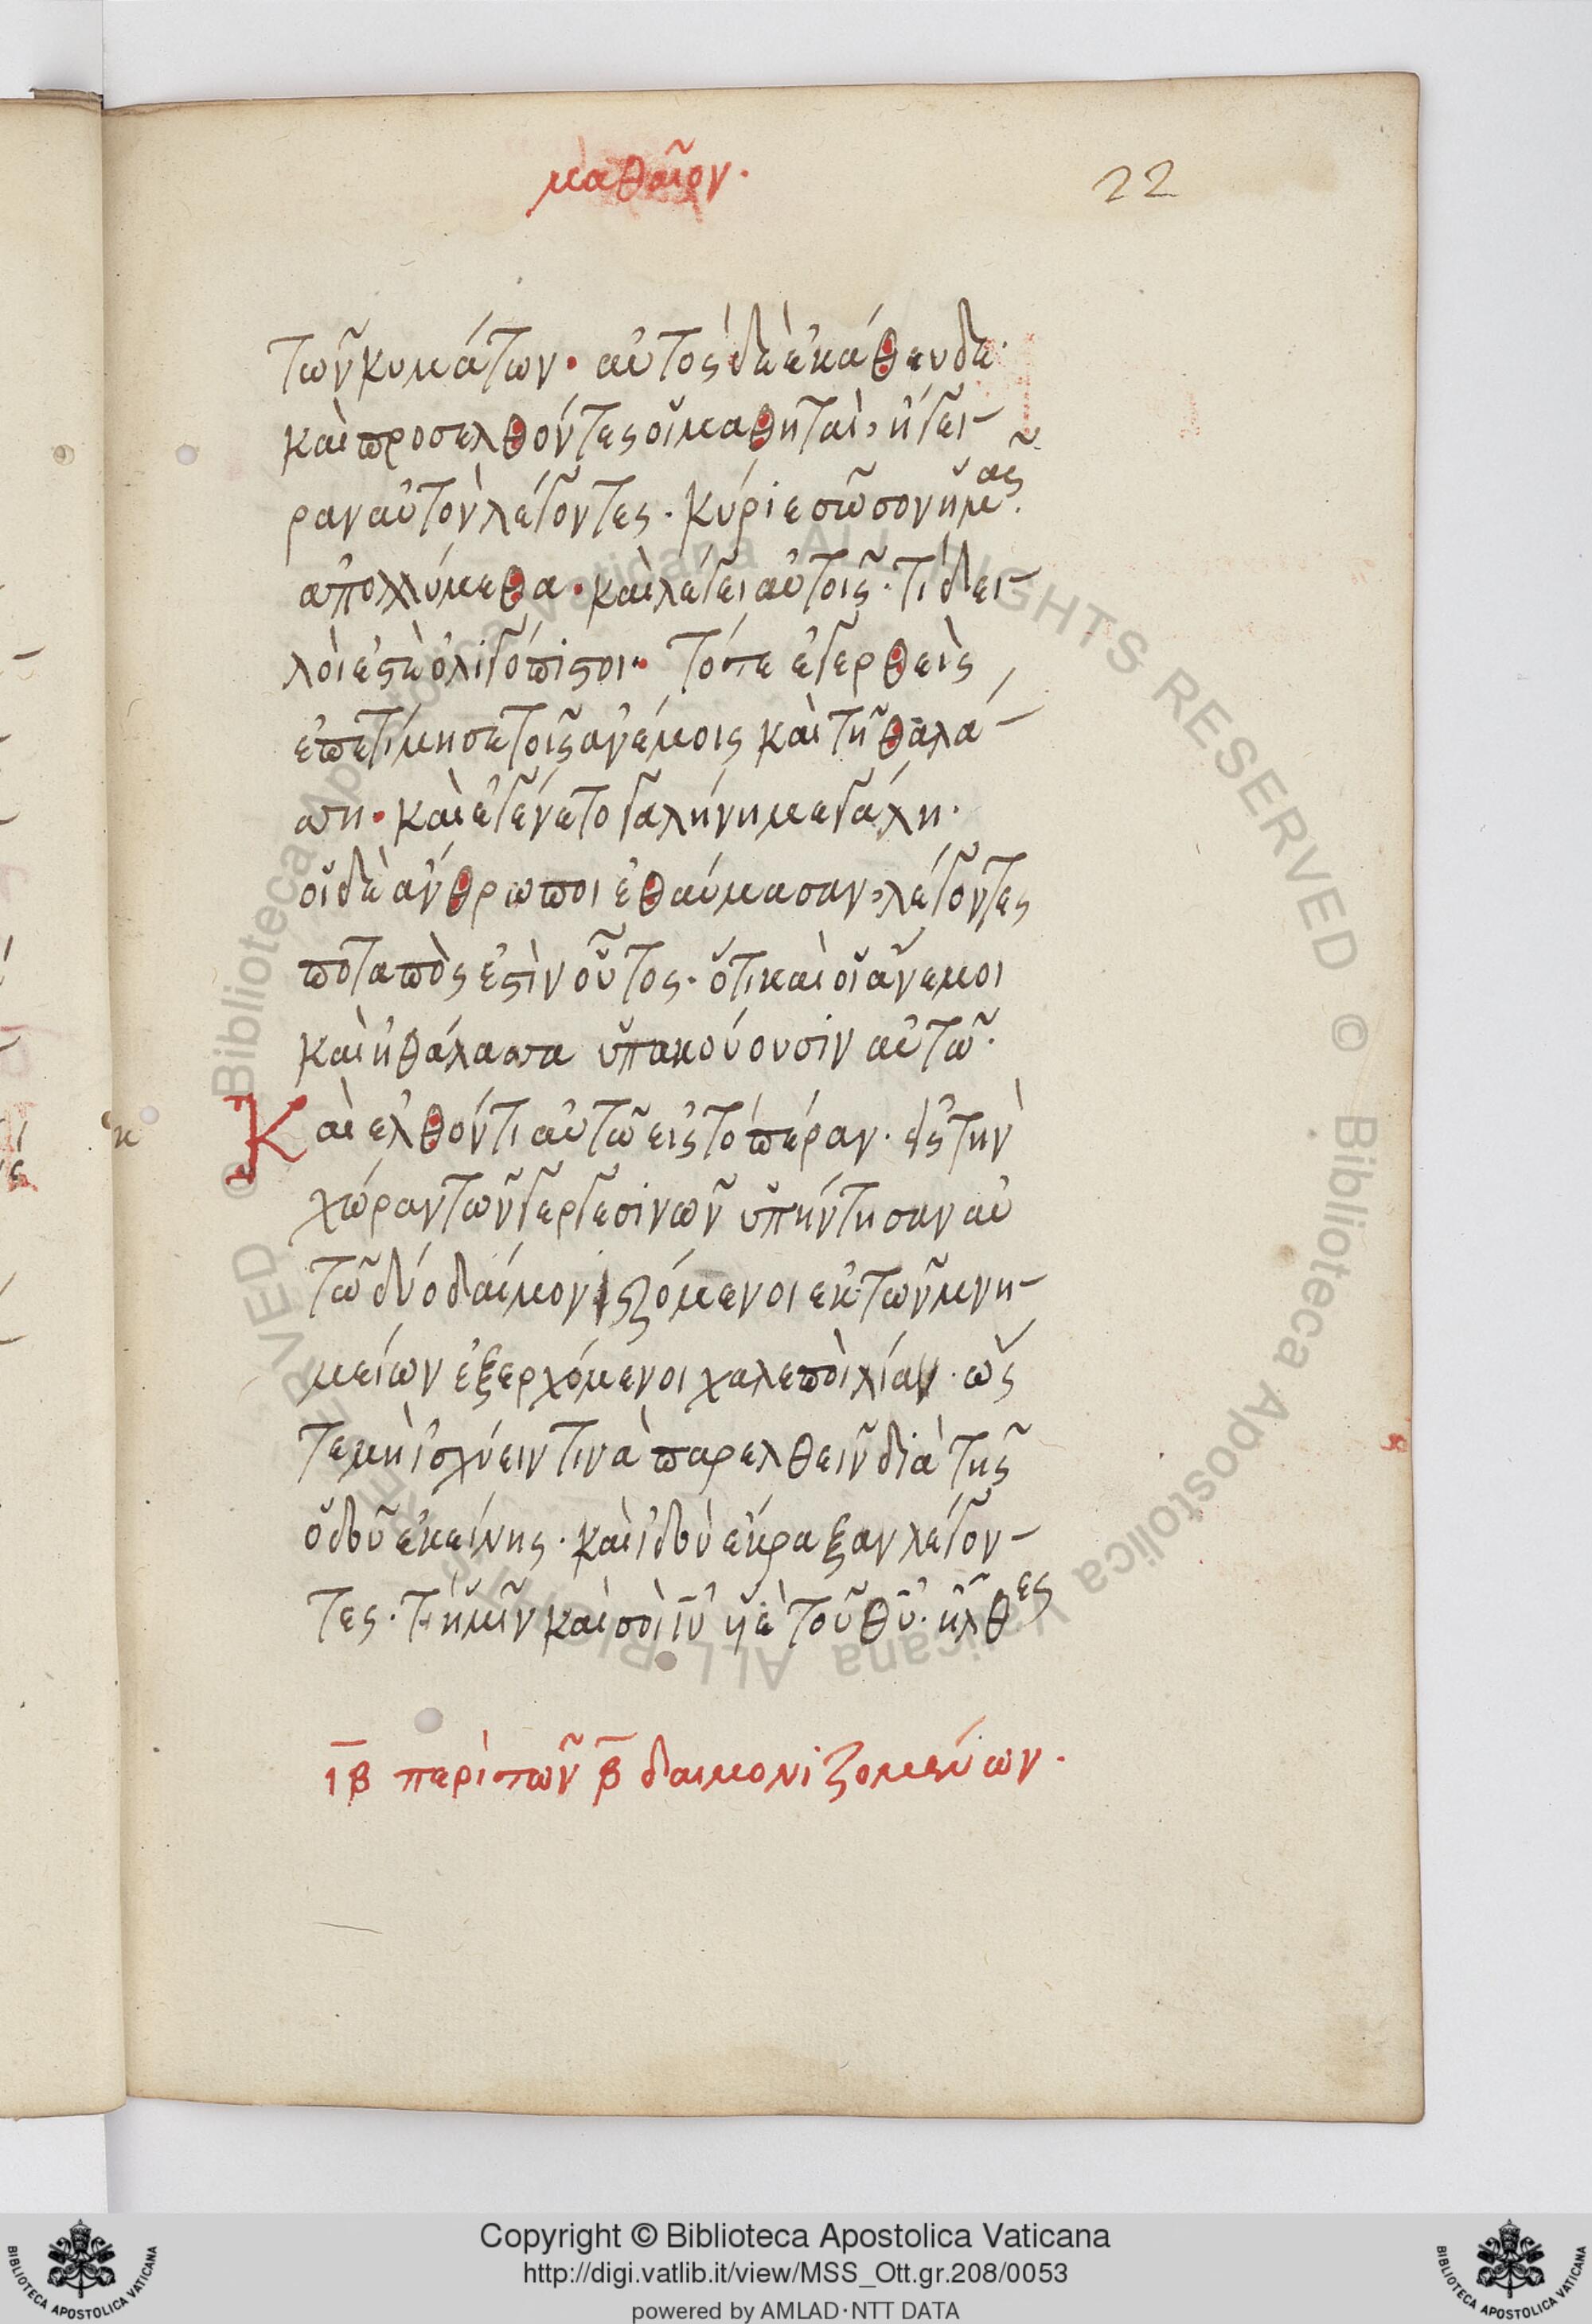 μαθαῖον.
22
τῶν κυμάτων· αὐτὸς δὲ ἐκάθευδε·
καὶ προσελθόντες οἱ μαθηταὶ, ἤγει-
ραν αὐτὸν λέγοντες· κύριε σῶσον ἡμᾶς·
ἀπολλύμεθα· καὶ λέγει αὐτοῖς· τί δει-
λοί ἐστὲ ὀλιγόπιστοι· Τότε ἐγερθεὶς
ἐπετίμησε τοῖς ἀνέμοις καὶ τῇ θαλά-
σση· καὶ ἐγένετο γαλήνη μεγάλη·
οἱ δὲ ἄνθρωποι ἐθαύμασαν, λέγοντες
ποταπὸς ἐστὶν οὗτος· ὅτι καὶ οἱ ἄνεμοι
καὶ ἡ θάλασσα ὑπακούουσιν αὐτῷ·
Καὶ ἐλθόντι αὐτῷ εἰς τὸ πέραν· εἰς τὴν
χώραν τῶν γεργεσινῶν ὑπήντησαν αὐ
τῷ δύο δαιμονιζόμενοι ἐκ τῶν μνη-
μείων ἐξερχόμενοι χαλεποὶ λίαν· ὥς
τε μὴ ἰσχύειν τινὰ παρελθεῖν διὰ τῆς
ὁδοῦ ἐκείνης· καὶ ἰδοὺ ἔκραξαν λέγον-
τες· τί ἡμῖν καὶ σοὶ ἰῦ ὑιὲ τοῦ θῦ· ἦλθες
ιβ περὶ τῶν β δαιμονιζομένων·
© Biblioteca Apostolica Vaticana ALL RIGHTS RESERVED © Biblioteca Apostolica Vaticana ALL RIGHTS RESERVED
Copyright © Biblioteca Apostolica Vaticana
http://digi.vatlib.it/view/MSS_Ott.gr.208/0053
powered by AMLAD·NTT DATA
BIBLIOTECA APOSTOLICA VATICANA
BIBLIOTECA APOSTOLICA VATICANA